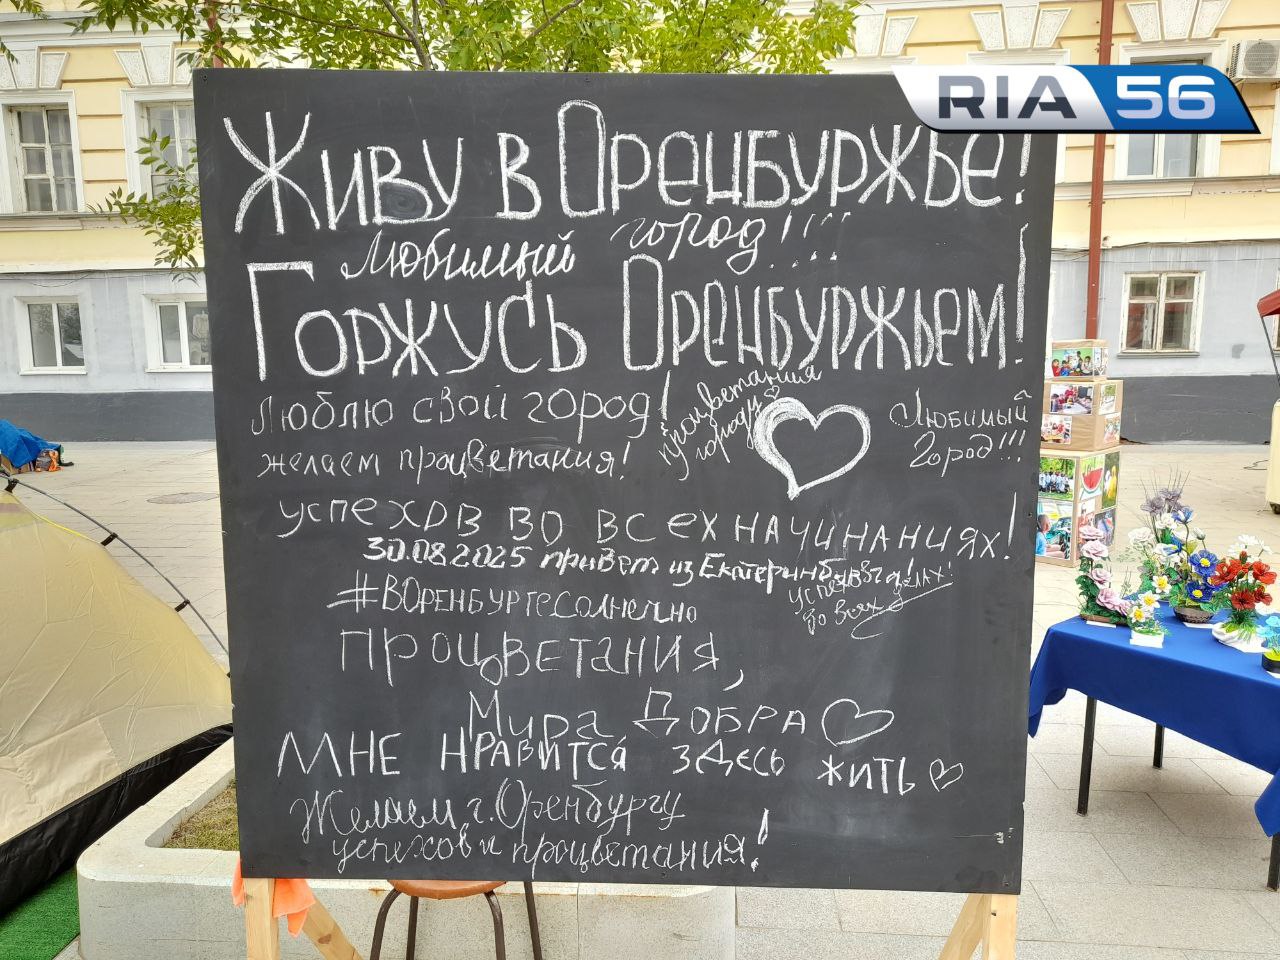 RIA 56
Живу в Оренбуржье!
Любимый город!!!!
Горжусь Оренбуржьем!
Люблю свой город!
процветания
городу
Любимый
город!!!
желаем процветания!
успехов во всех начинаниях!
30.08.2025 привет из Екатеринбурга!
успехов
во всех делах!
#вОренбургесолнечно
процветания,
Мира, Добра
Мне нравится здесь жить
Желаем г. Оренбургу
успехов и процветания!